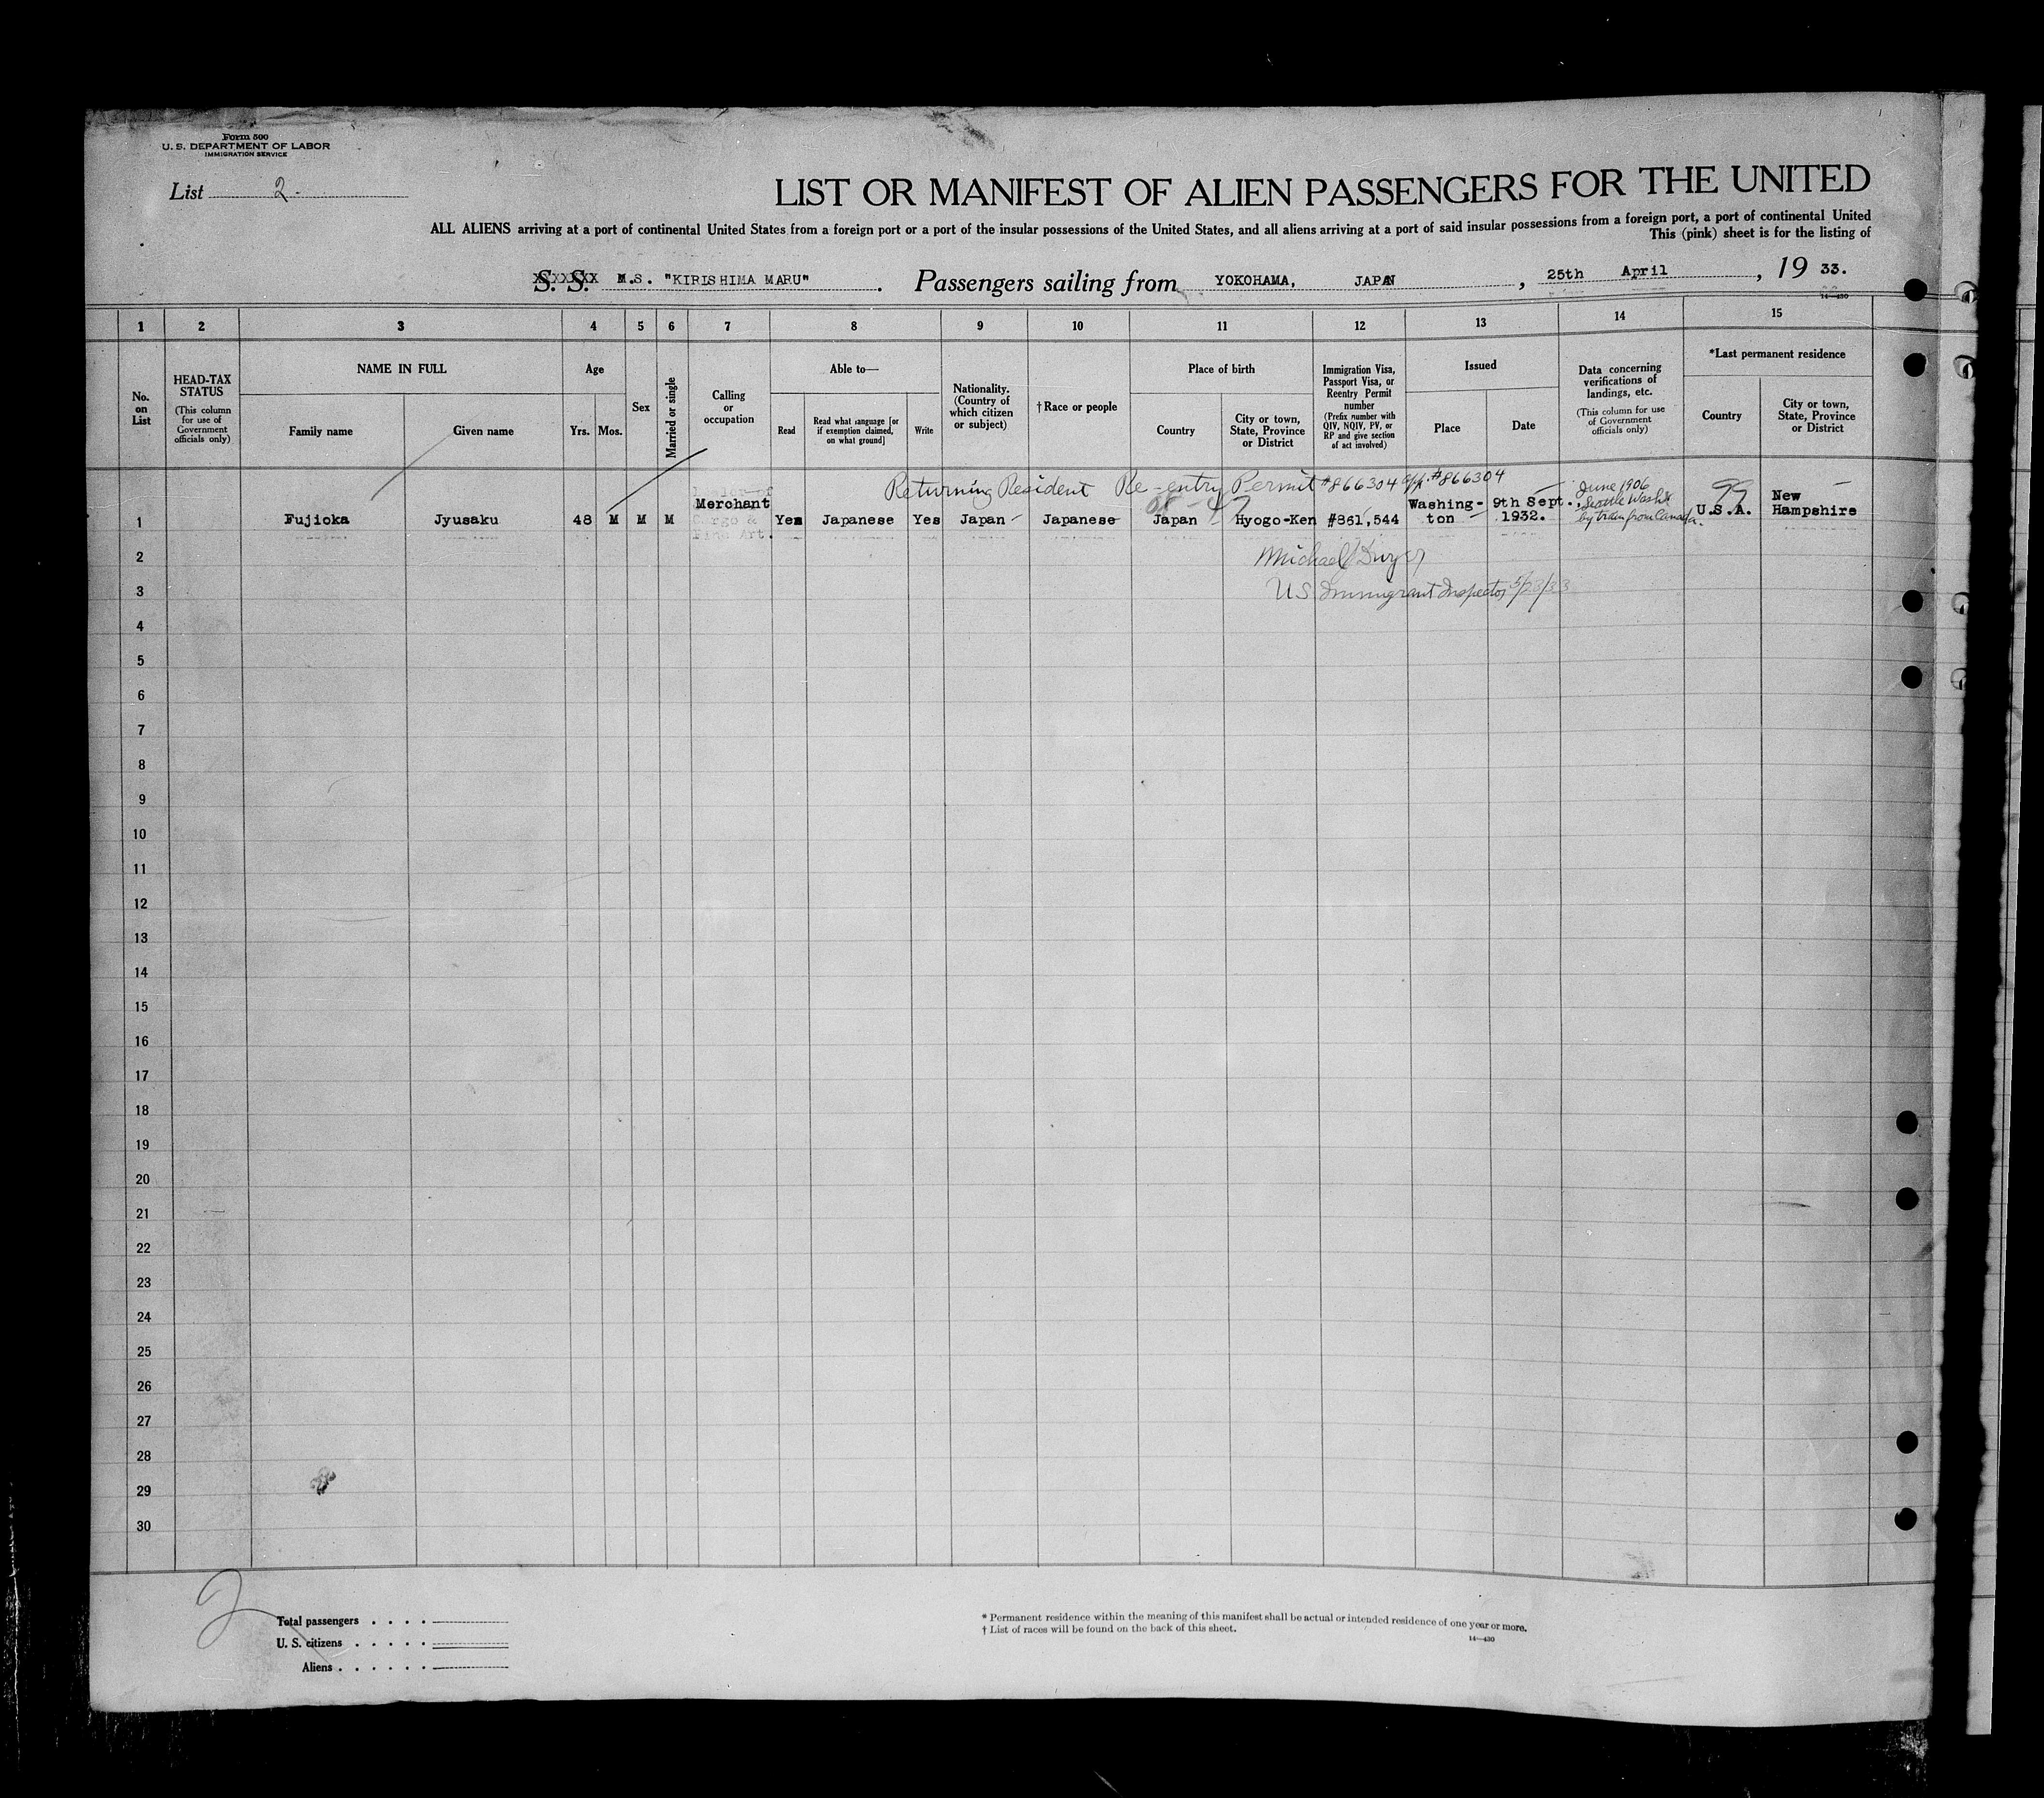 Form 500
U. S. DEPARTMENT OF LABOR
IMMIGRATION SERVICE
List 2.
LIST OR MANIFEST OF ALIEN PASSENGERS FOR THE UNITED
ALL ALIENS arriving at a port of continental United States from a foreign port or a port of the insular possessions of the United States, and all aliens arriving at a port of said insular possessions from a foreign port, a port of continental United
This (pink) sheet is for the listing of
S. S. M.S. "KIRISHIMA MARU". Passengers sailing from YOKOHAMA, JAPAN, 25th April, 19 33.
14—430
1 2 3 4 5 6 7 8 9 10 11 12 13 14 15
No. on List
HEAD-TAX STATUS
(This column for use of Government officials only)
NAME IN FULL
Family name
Given name
Age
Yrs. Mos.
Sex
Married or single
Calling or occupation
Able to—
Read
Read what language [or if exemption claimed, on what ground]
Write
Nationality. (Country of which citizen or subject)
†Race or people
Place of birth
Country
City or town, State, Province or District
Immigration Visa, Passport Visa, or Reentry Permit number
(Prefix number with QIV, NQIV, PV, or RP and give section of act involved)
Issued
Place
Date
Data concerning verifications of landings, etc.
(This column for use of Government officials only)
*Last permanent residence
Country
City or town, State, Province or District
Returning Resident Re-entry Permit #866304 #866304
1 Fujioka Jyusaku 48 M M M Merchant Yes Japanese Yes Japan Japanese Japan Hyogo-Ken #861,544 Washing-ton 9th Sept., 1932. June 1906 Seattle Wash by train from Canada. U.S.A. New Hampshire
99
2
Michael Dwyer
3
U S Immigrant Inspector 5/23/33
4
5
6
7
8
9
10
11
12
13
14
15
16
17
18
19
20
21
22
23
24
25
26
27
28
29
30
2
Total passengers . . . .
U. S. citizens . . . . .
Aliens . . . . . .
* Permanent residence within the meaning of this manifest shall be actual or intended residence of one year or more.
† List of races will be found on the back of this sheet.
14—430